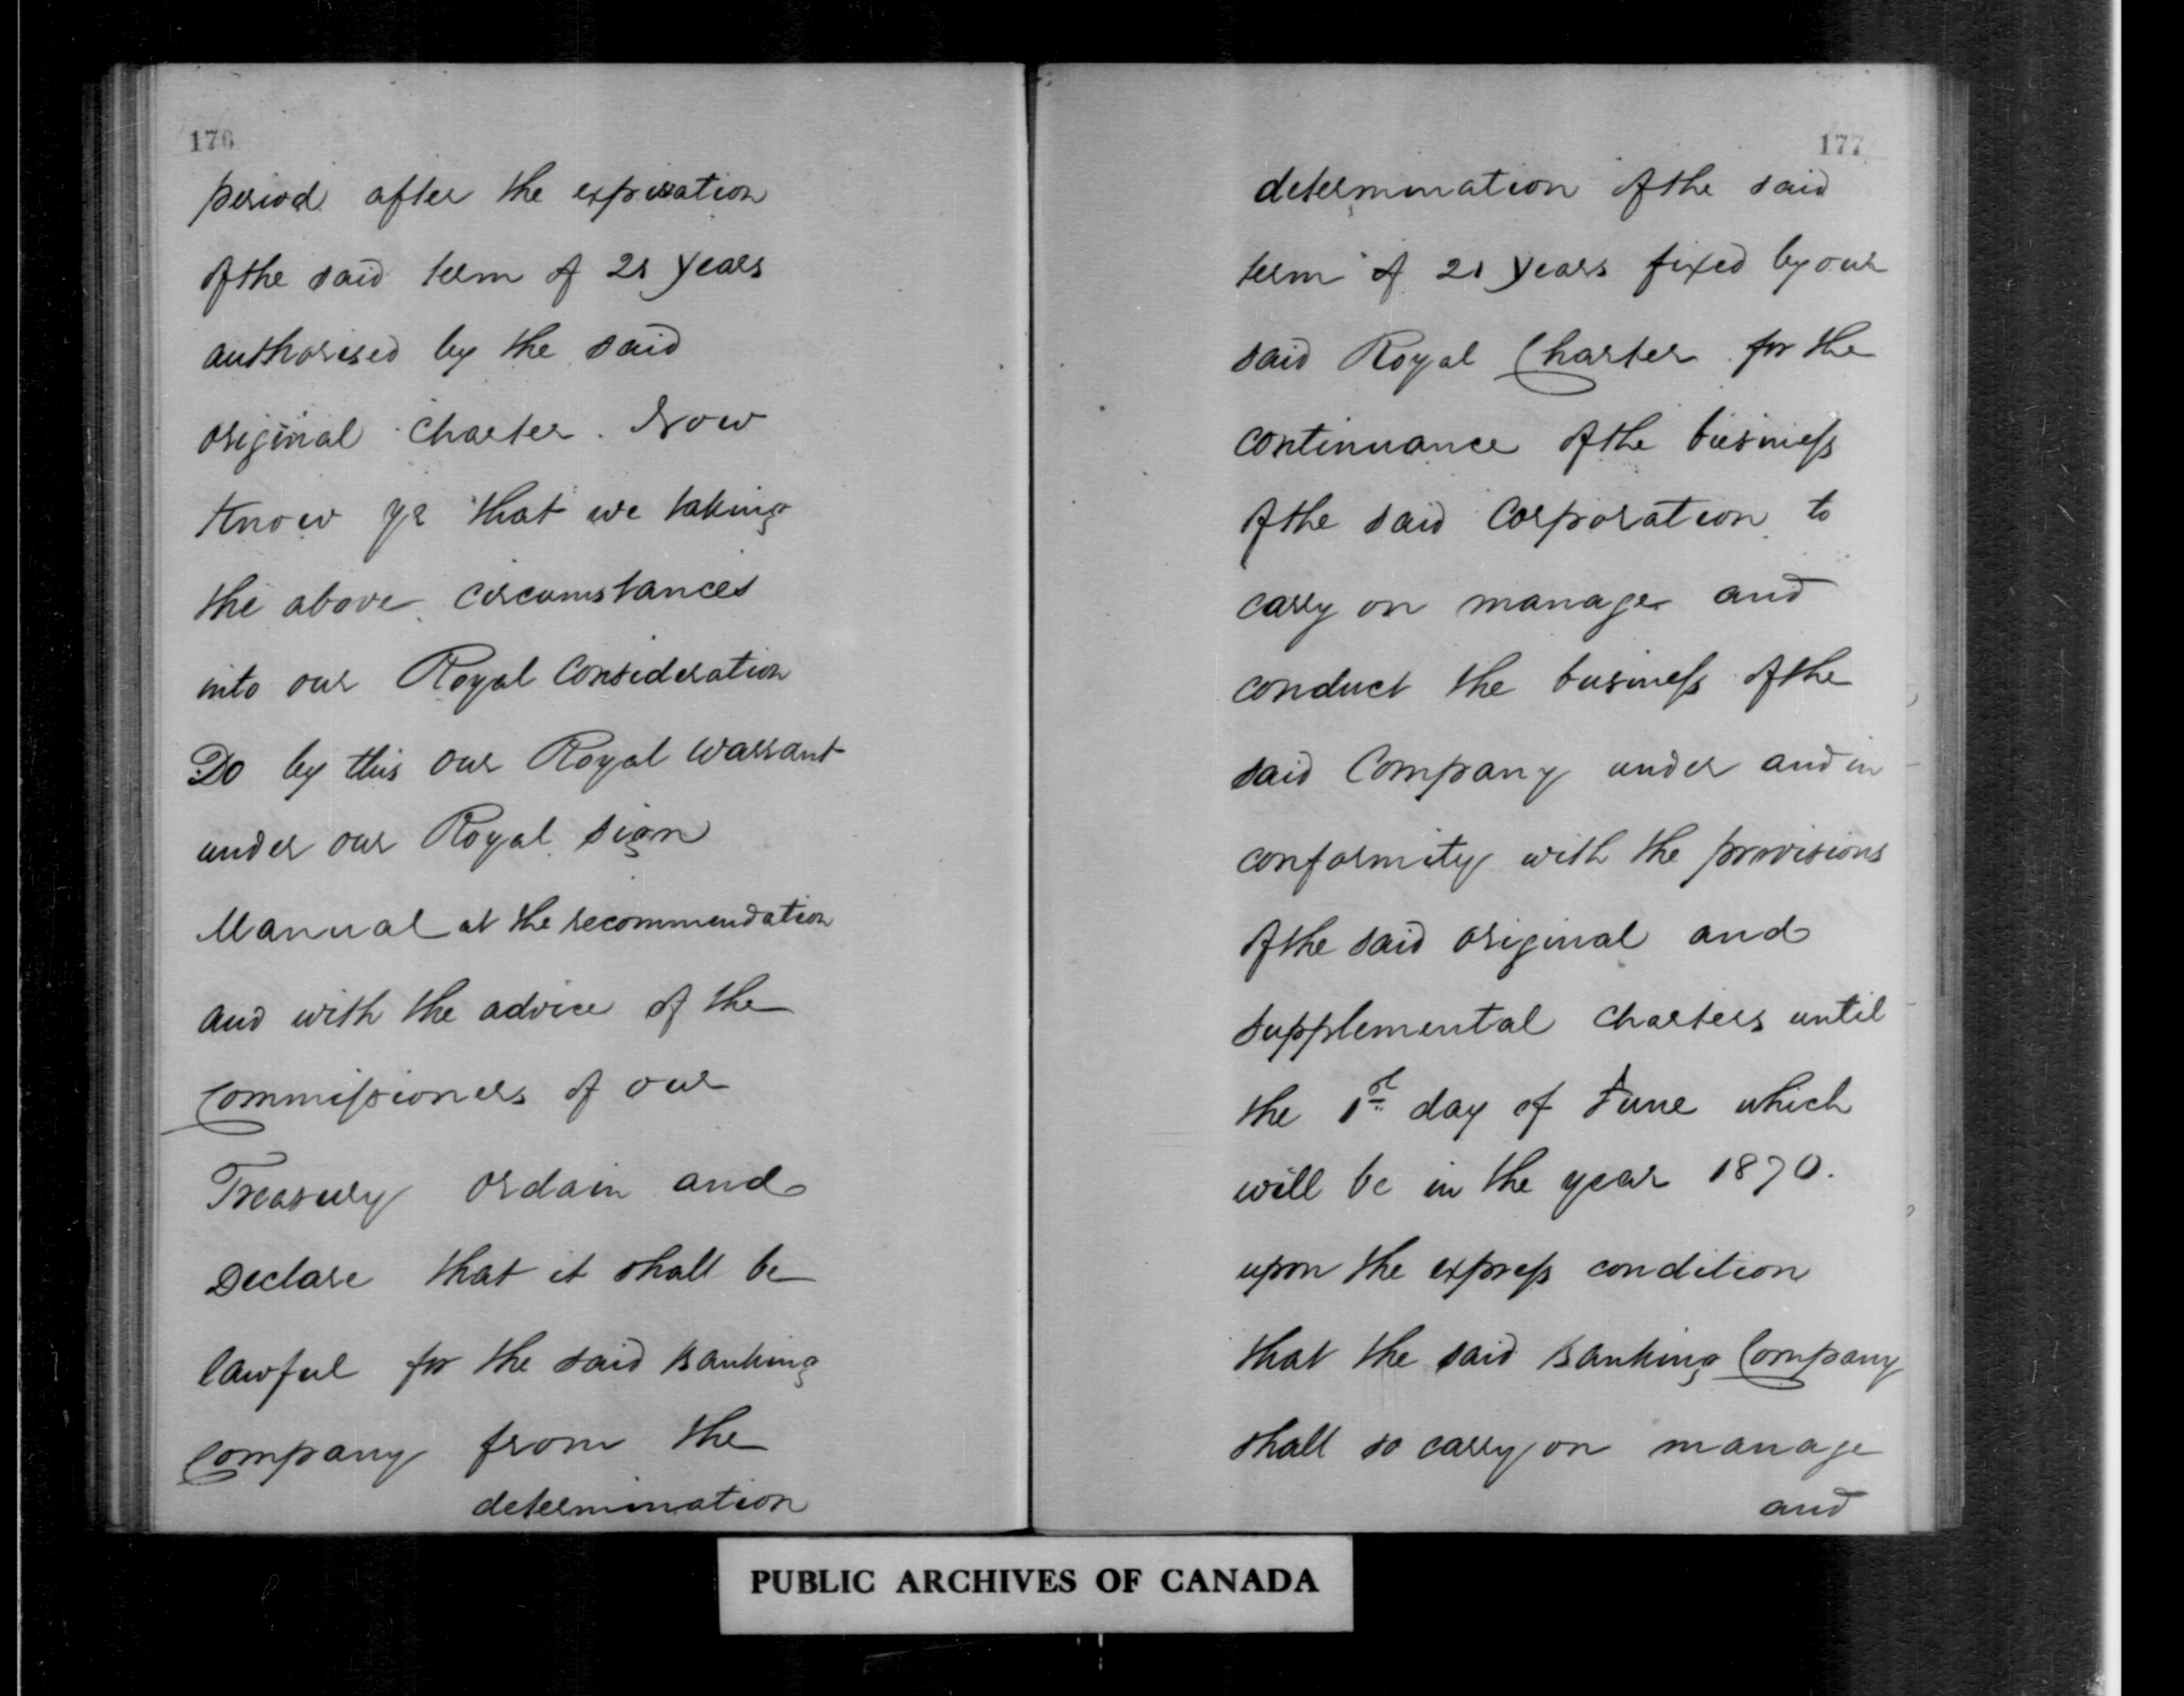 176
period after the expiration
of the said term of 21 years
authorised by the said
original charter. Now
Know ye that we taking
the above circumstances
into our Royal Consideration
Do by this our Royal Warrant
under our Royal sign
Manual at the recommendation
and with the advice of the
Commissioners of our
Treasury ordain and
Declare that it shall be
lawful for the said Banking
Company from the
determination
177
determination of the said
term of 21 years fixed by our
said Royal Charter for the
continuance of the business
of the said Corporation to
carry on manage and
conduct the business of the
said Company under and in
conformity with the provisions
of the said original and
supplemental charters until
the 1st day of June which
will be in the year 1870.
upon the express condition
that the said Banking Company
shall so carry on manage
and
PUBLIC ARCHIVES OF CANADA